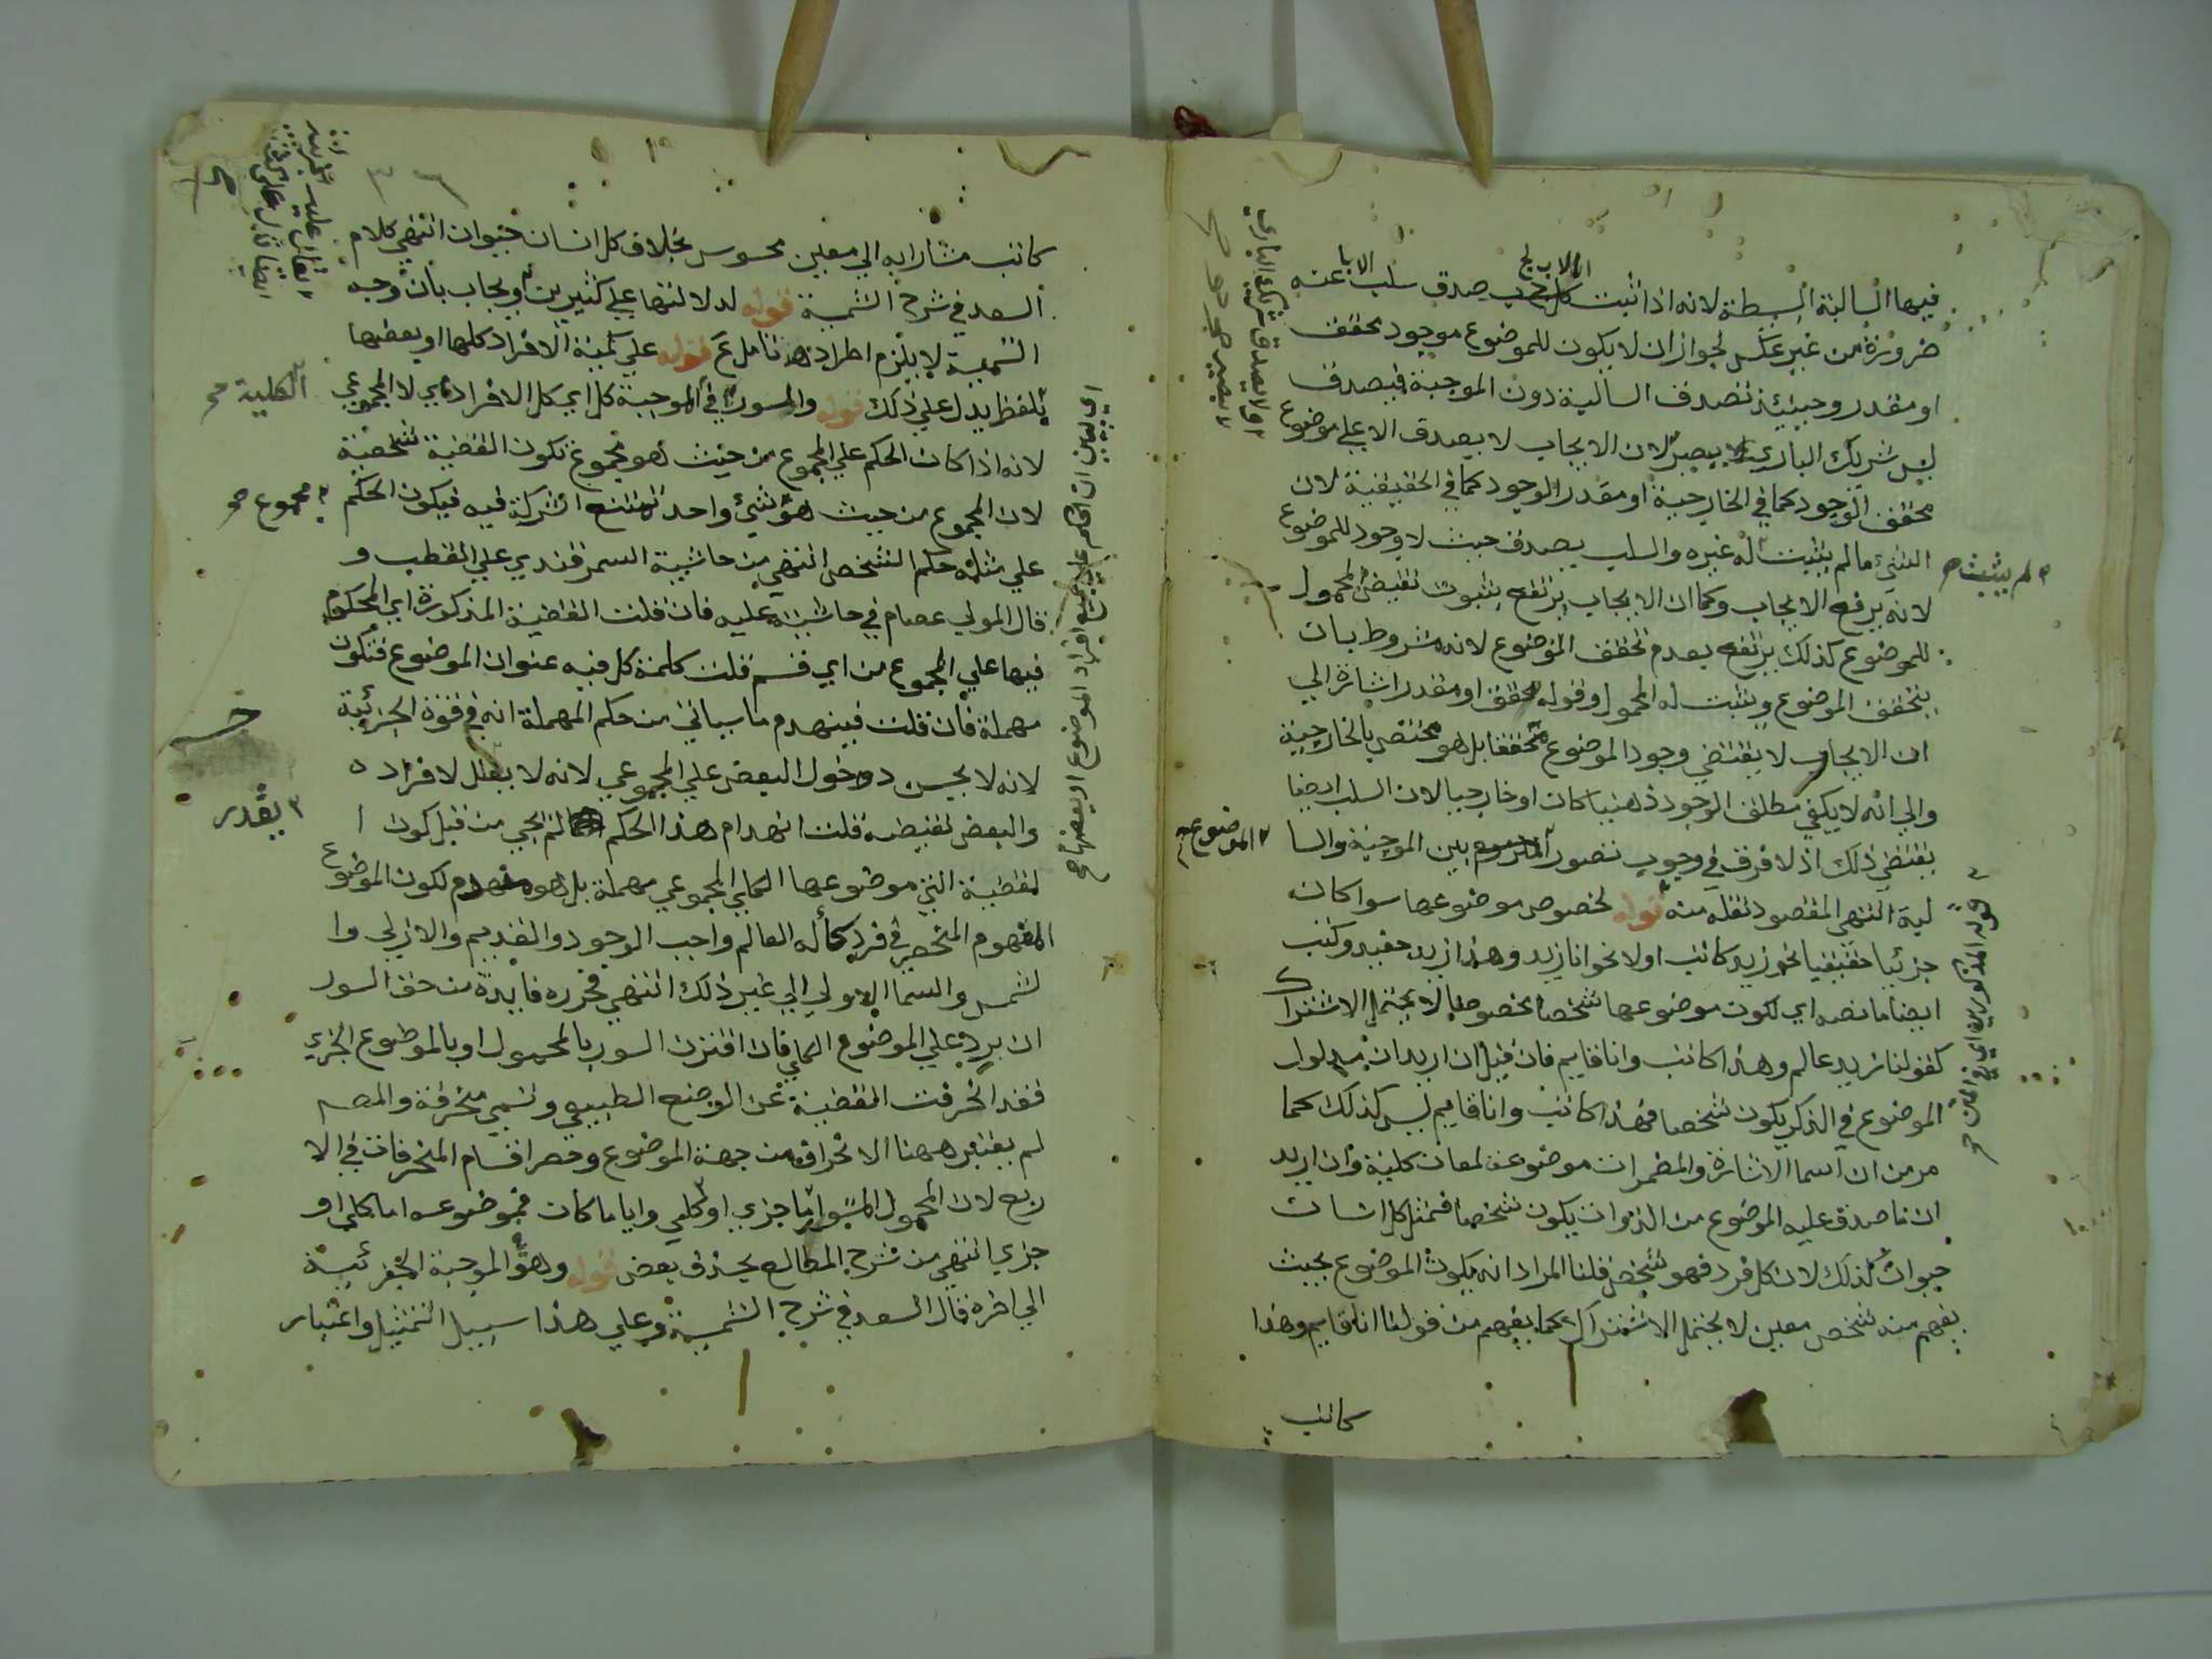 فيها السالبة البسيطة لانه اذا ثبت اللاب لج صدق سلب الابا عنه
ضرورة من غير عكس لجواز ان لا يكون للموضوع موجود محقق
او مقدر وحينئذ تصدق السالبة دون الموجبة فيصدق
ليس شريك الباري ببصير لان الايجاب لا يصدق الا على موضوع
محقق الوجود كما في الخارجية او مقدر الوجود كما في الحقيقية لان
الشيء ما لم يثبت له غيره والسلب يصدق حيث لا وجود للموضوع
لانه يرفع الايجاب وكما ان الايجاب يرتفع بثبوت نقيض المحمول
للموضوع كذلك يرتفع بعدم تحقق الموضوع لانه مشروط بان
يتحقق الموضوع ويثبت له المحمول وقوله محقق او مقدر اشارة الي
ان الايجاب لا يقتضي وجود الموضوع محققا بل هو مختص بالخارجية
والي انه لا يكفي مطلق الوجود ذهنيا كان او خارجيا لان السلب ايضا
يقتضي ذلك اذ لا فرق في وجوب تصور بين الموجبة والسا
لبة انتهي المقصود نقله منه قوله لخصوص موضوعها سوا كان
جزئيا حقيقيا نحو زيد كاتب اولا نحو انا زيد وهذا زيد حفيد وكتب
ايضا ما نصه اي لكون موضوعها شخصا مخصوصا لا يحتمل الاشتراك
كقولنا زيد عالم وهذا كاتب وانا قايم فان قيل ان اريد ان مدلول
الموضوع في الذكر يكون شخصا فهذا كاتب وانا قايم ليس كذلك كما
مر من ان اسما الاشارة والمضمرات موضوعة لمعان كلية وان اريد
ان ما صدق عليه الموضوع من الذوات يكون شخصا فمثل كل انسان
حيوان كذلك لان كل فرد فهو شخص قلنا المراد انه يكون الموضوع بحيث
يفهم منه شخص معين لا يحتمل الاشتراك كما يفهم من قولنا انا قايم وهذا
كاتب
ولا يصدق شريك الباري
لا بصير
لم يثبت
الموضوع
قوله المذكور
كاتب مشارا به الي معين محسوس بخلاف كل انسان حيوان انتهي كلام
السعد في شرح الشمسية قوله لدلالتها علي كثيرين ويجاب بان وجه
التسمية لا يلزم اطراده تامل ع قوله علي كمية الافراد كلها او بعضها
بلفظ يدل علي ذلك قوله والسور في الموجبة كل اي كل الافرادي لا المجموعي
لانه اذا كان الحكم علي المجموع من حيث هو مجموع تكون القضية شخصية
لان المجموع من حيث هو شيء واحد تمتنع الشركة فيه فيكون الحكم
علي مثله حكم الشخص انتهي من حاشية السمرقندي علي القطب و
قال المولي عصام في حاشيته عليه فان قلت القضية المذكورة اي المحكوم
فيها علي المجموع من اي قسم قلت كلمة كل فيه عنوان الموضوع فتكون
مهملة فان قلت فينهدم ما سياتي من حكم المهملة انه في قوة الجزئية
لانه لا يحسن دخول البعض علي المجموعي لانه لا يقال لافراده
والبعض نقيضه قلت انهدام هذا الحكم لم يجي من قبل كون ا
لقضية التي موضوعها الكلي المجموعي مهملة بل هو منهدم لكون الموضوع
المفهوم المنحصر في فرد كأله العالم واجب الوجود والقديم والازلي وا
لشمس والسما الاولي الي غير ذلك انتهي فحرره فايدة من حق السور
ان يرد علي الموضوع الكلي فان اقترن السور بالمحمول او بالموضوع الجزي
فقد انحرفت القضية عن الوضع الطبيعي وتسمي منحرفة والمصـ
لم يعتبر ههنا الانحراف من جهة الموضوع وحصر اقسام المنحرفات في الا
ربع لان المحمول المسور اما جزي او كلي وايا ما كان فموضوعه اما كلي او
جزي انتهي من شرح المطالع بحذف بعض قوله وهو الموجبة الجزئية
الي اخره قال السعد في شرح الشمسية وعلي هذا سبيل التمثيل واعتبار
الكلية صح
مجموع صح
يقدر
اي يبين ان الحكم علي جميع افراد الموضوع او بعضها صح